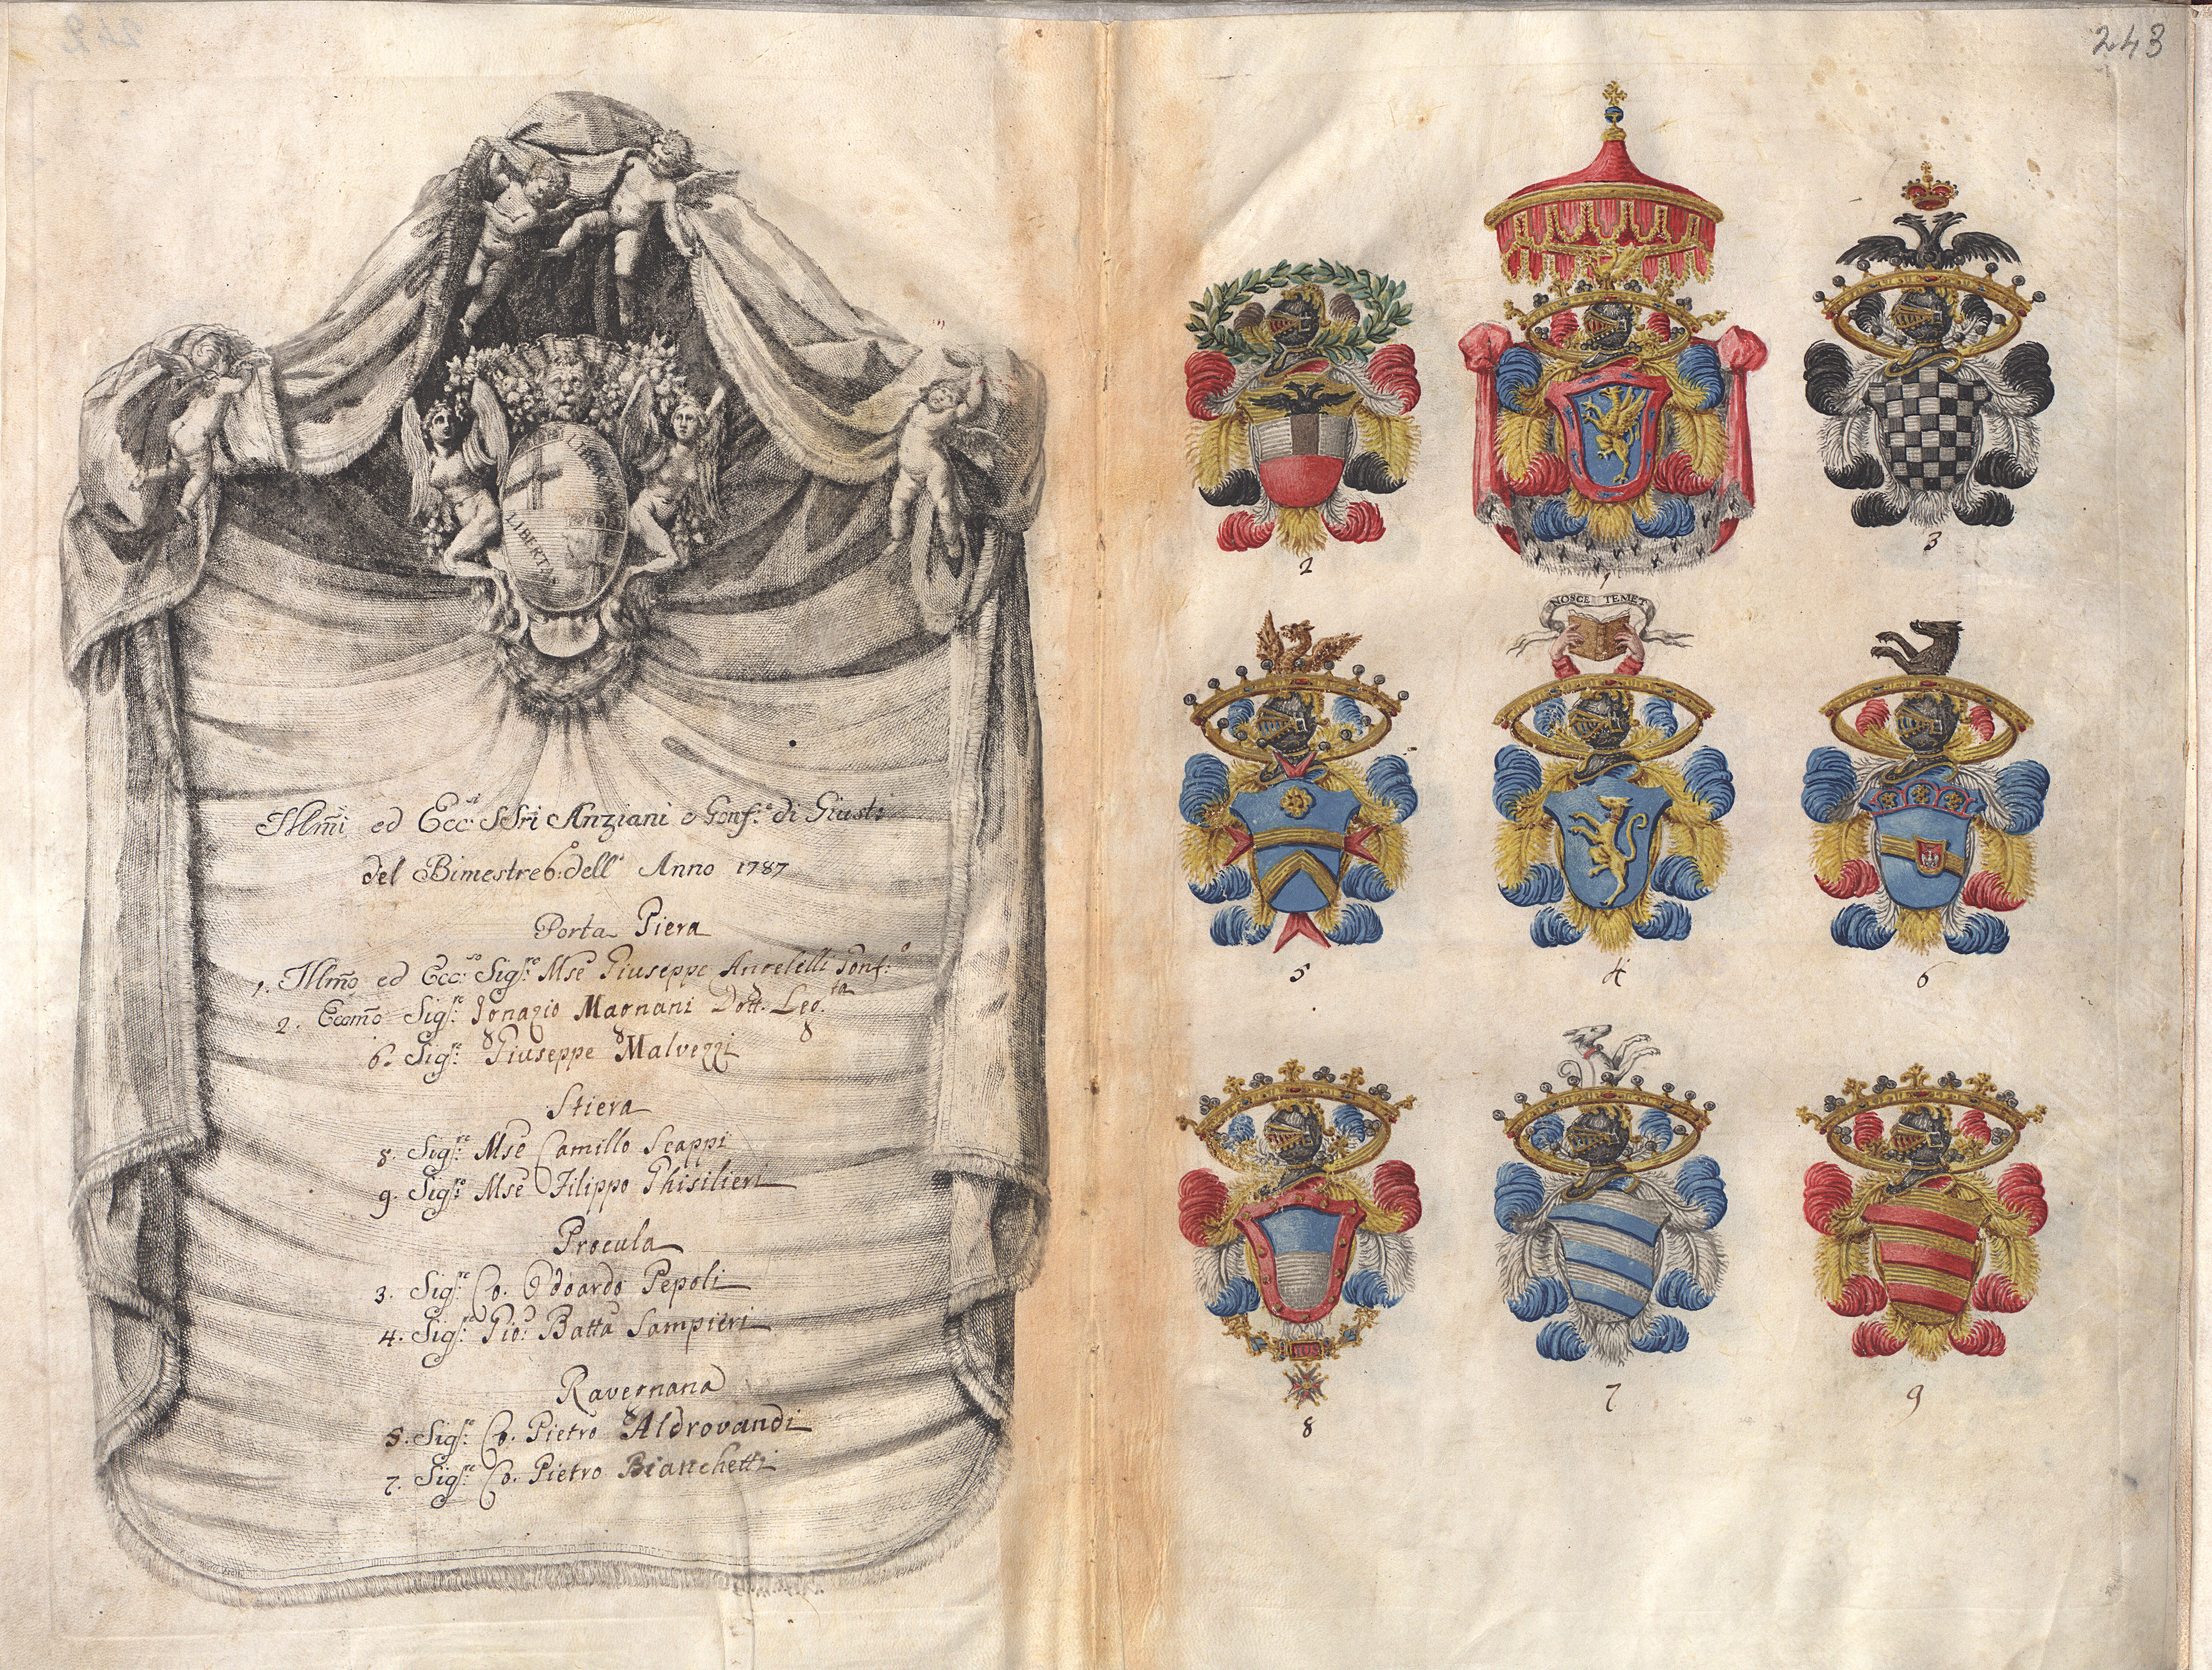 243
LIBERTAS
LIBERTAS
Illm̃i ed Ecc:si SSri Anziani e Gonf:e di Giust:
del Bimestre 6:o dell' Anno 1787
Porta Piera
1. Illm̃o ed Ecc:so Sig:re Mse Giuseppe Angelelli Gonf:o
2. Eccmõ Sig:re Ignazio Magnani Dott. Leg:ta
6. Sig:re Giuseppe Malvezzi
Stiera
8. Sig:re Mse Camillo Scappi
9. Sig:re Mse Filippo Ghisilieri
Procula
3. Sig:re Co. Odoardo Pepoli
4. Sig:re Gio: Batta Sampieri
Ravegnana
5. Sig:re Co. Pietro Aldrovandi
7. Sig:re Co. Pietro Bianchetti
2
1
3
NOSCE TEMET
5
4
6
8
7
9